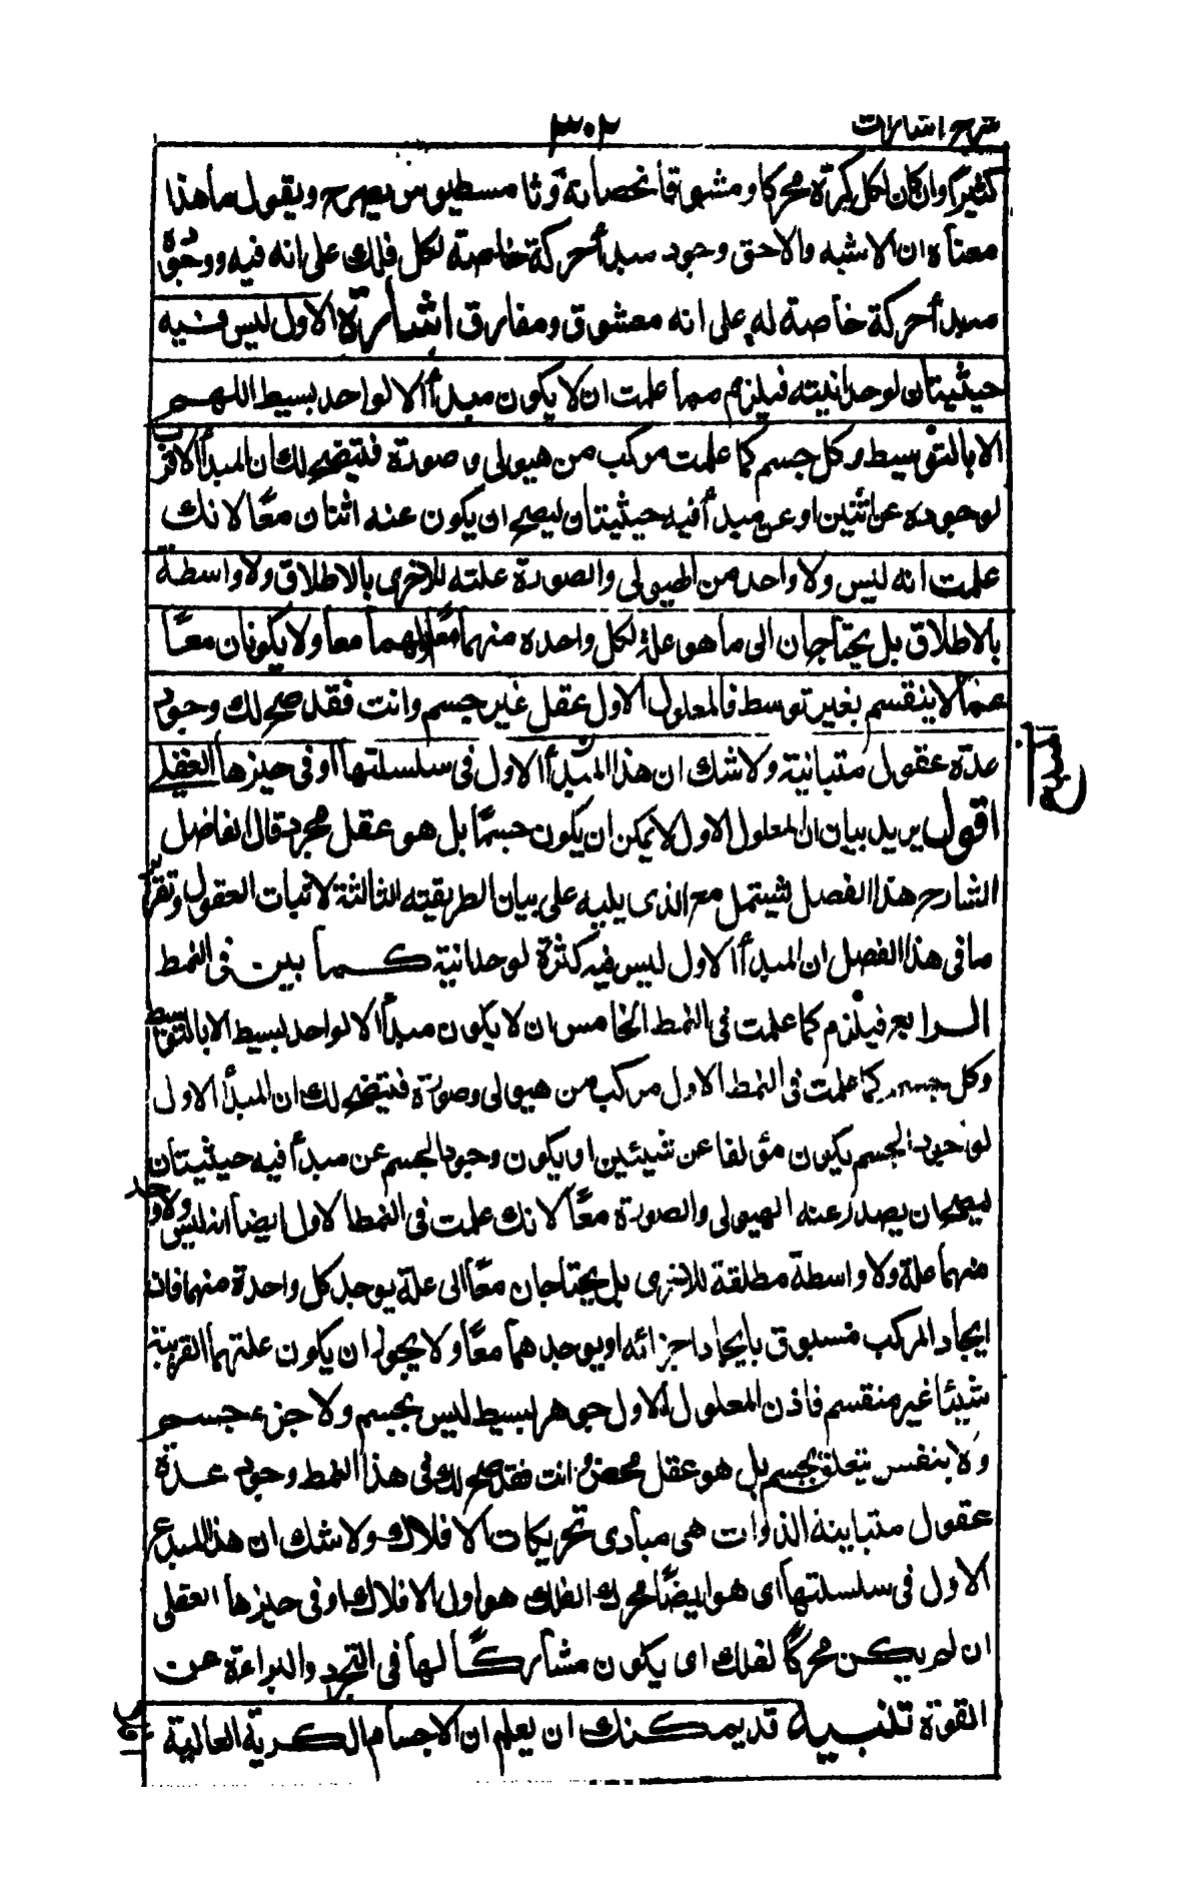 شرح اشارات ٣٠٢
كثيرًا وان كان لكل كرة محركا ومشوقا نحصانه وثامسطيوس يصرح ويقول ما هذا
معناه ان الاشبه والاحق وجود مبدأ حركة خاصة لكل فلك على انه فيه ووجود
مبدأ حركة خاصة له على انه معشوق ومفارق اشارة الاول ليس فيه
حيثيتان لوحدانيته فيلزم مما علمت ان لا يكون مبدأ الا لواحد بسيط اللهم
الا بالتوسيط وكل جسم كما علمت مركب من هيولى وصورة فتيضح لك ان المبدأ الاقرب
لوجوده عن اثنين او عن مبدأ فيه حيثيتان ليصح ان يكون عنه اثنان معًا لانك
علمت انه ليس ولا واحد من الهيولى والصورة علته للاخرى بالاطلاق ولا واسطة
بالاطلاق بل يحتاجان الى ما هو علة لكل واحده منهما معًا ولهما معا ولا يكونان معًا
عما لا ينقسم بغير توسط فالمعلول الاول عقل غير جسم وانت فقد صح لك وجود
عدة عقول متباينة ولا شك ان هذا المبدأ الاول فى سلسلتها او فى حيزها العقلى
اقول يريد بيان ان المعلول الاول لا يمكن ان يكون جسمًا بل هو عقل مجرد قال الفاضل
الشارح هذا الفصل يشتمل مع الذى يليه على بيان الطريقته الثالثة لاثبات العقول وتقرير
ما فى هذا الفصل ان المبدأ الاول ليس فيه كثرة لوحدانية كما بين فى النمط
الرابع فيلزم كما علمت فى النمط الخامس ان لا يكون مبدأ الا لواحد بسيط الا بالتوسيط
وكل جسم كما علمت فى النمط الاول مركب من هيولى وصورة فتيضح لك ان المبدأ الاول
لوجود الجسم يكون مؤلفا عن شيئين او يكون وجود الجسم عن مبدأ فيه حيثيتان
ليصح ان يصدر عنه الهيولى والصورة معًا لانك علمت فى النمط الاول ايضا انه ليس ولا واحد
منهما علة ولا واسطة مطلقة للاخرى بل يحتاجان معًا الى علة يوجد كل واحدة منهما فان
ايجاد المركب مسبوق بايجاد اجزائه او يوجدهما معًا ولا يجوز ان يكون علتهما القريبة
شيئا غير منقسم فاذن المعلول الاول جوهر بسيط ليس بجسم ولا جزء جسم
ولا بنفس يتعلق بجسم بل هو عقل محض وانت فقد صح لك فى هذا النمط وجود عدة
عقول متباينة الذوات هى مبادى تحريكات الافلاك ولا شك ان هذا المبدع
الاول فى سلسلتها اى هو ايضًا محرك الفلك هو اول الافلاك او فى حيزها العقلى
ان لم يكن محركًا لفلك اى يكون مشاركًا لها فى التجرد والبراءة عن
القوة تنبيه قد يمكنك ان يعلم ان الاجسام الكرية العالية